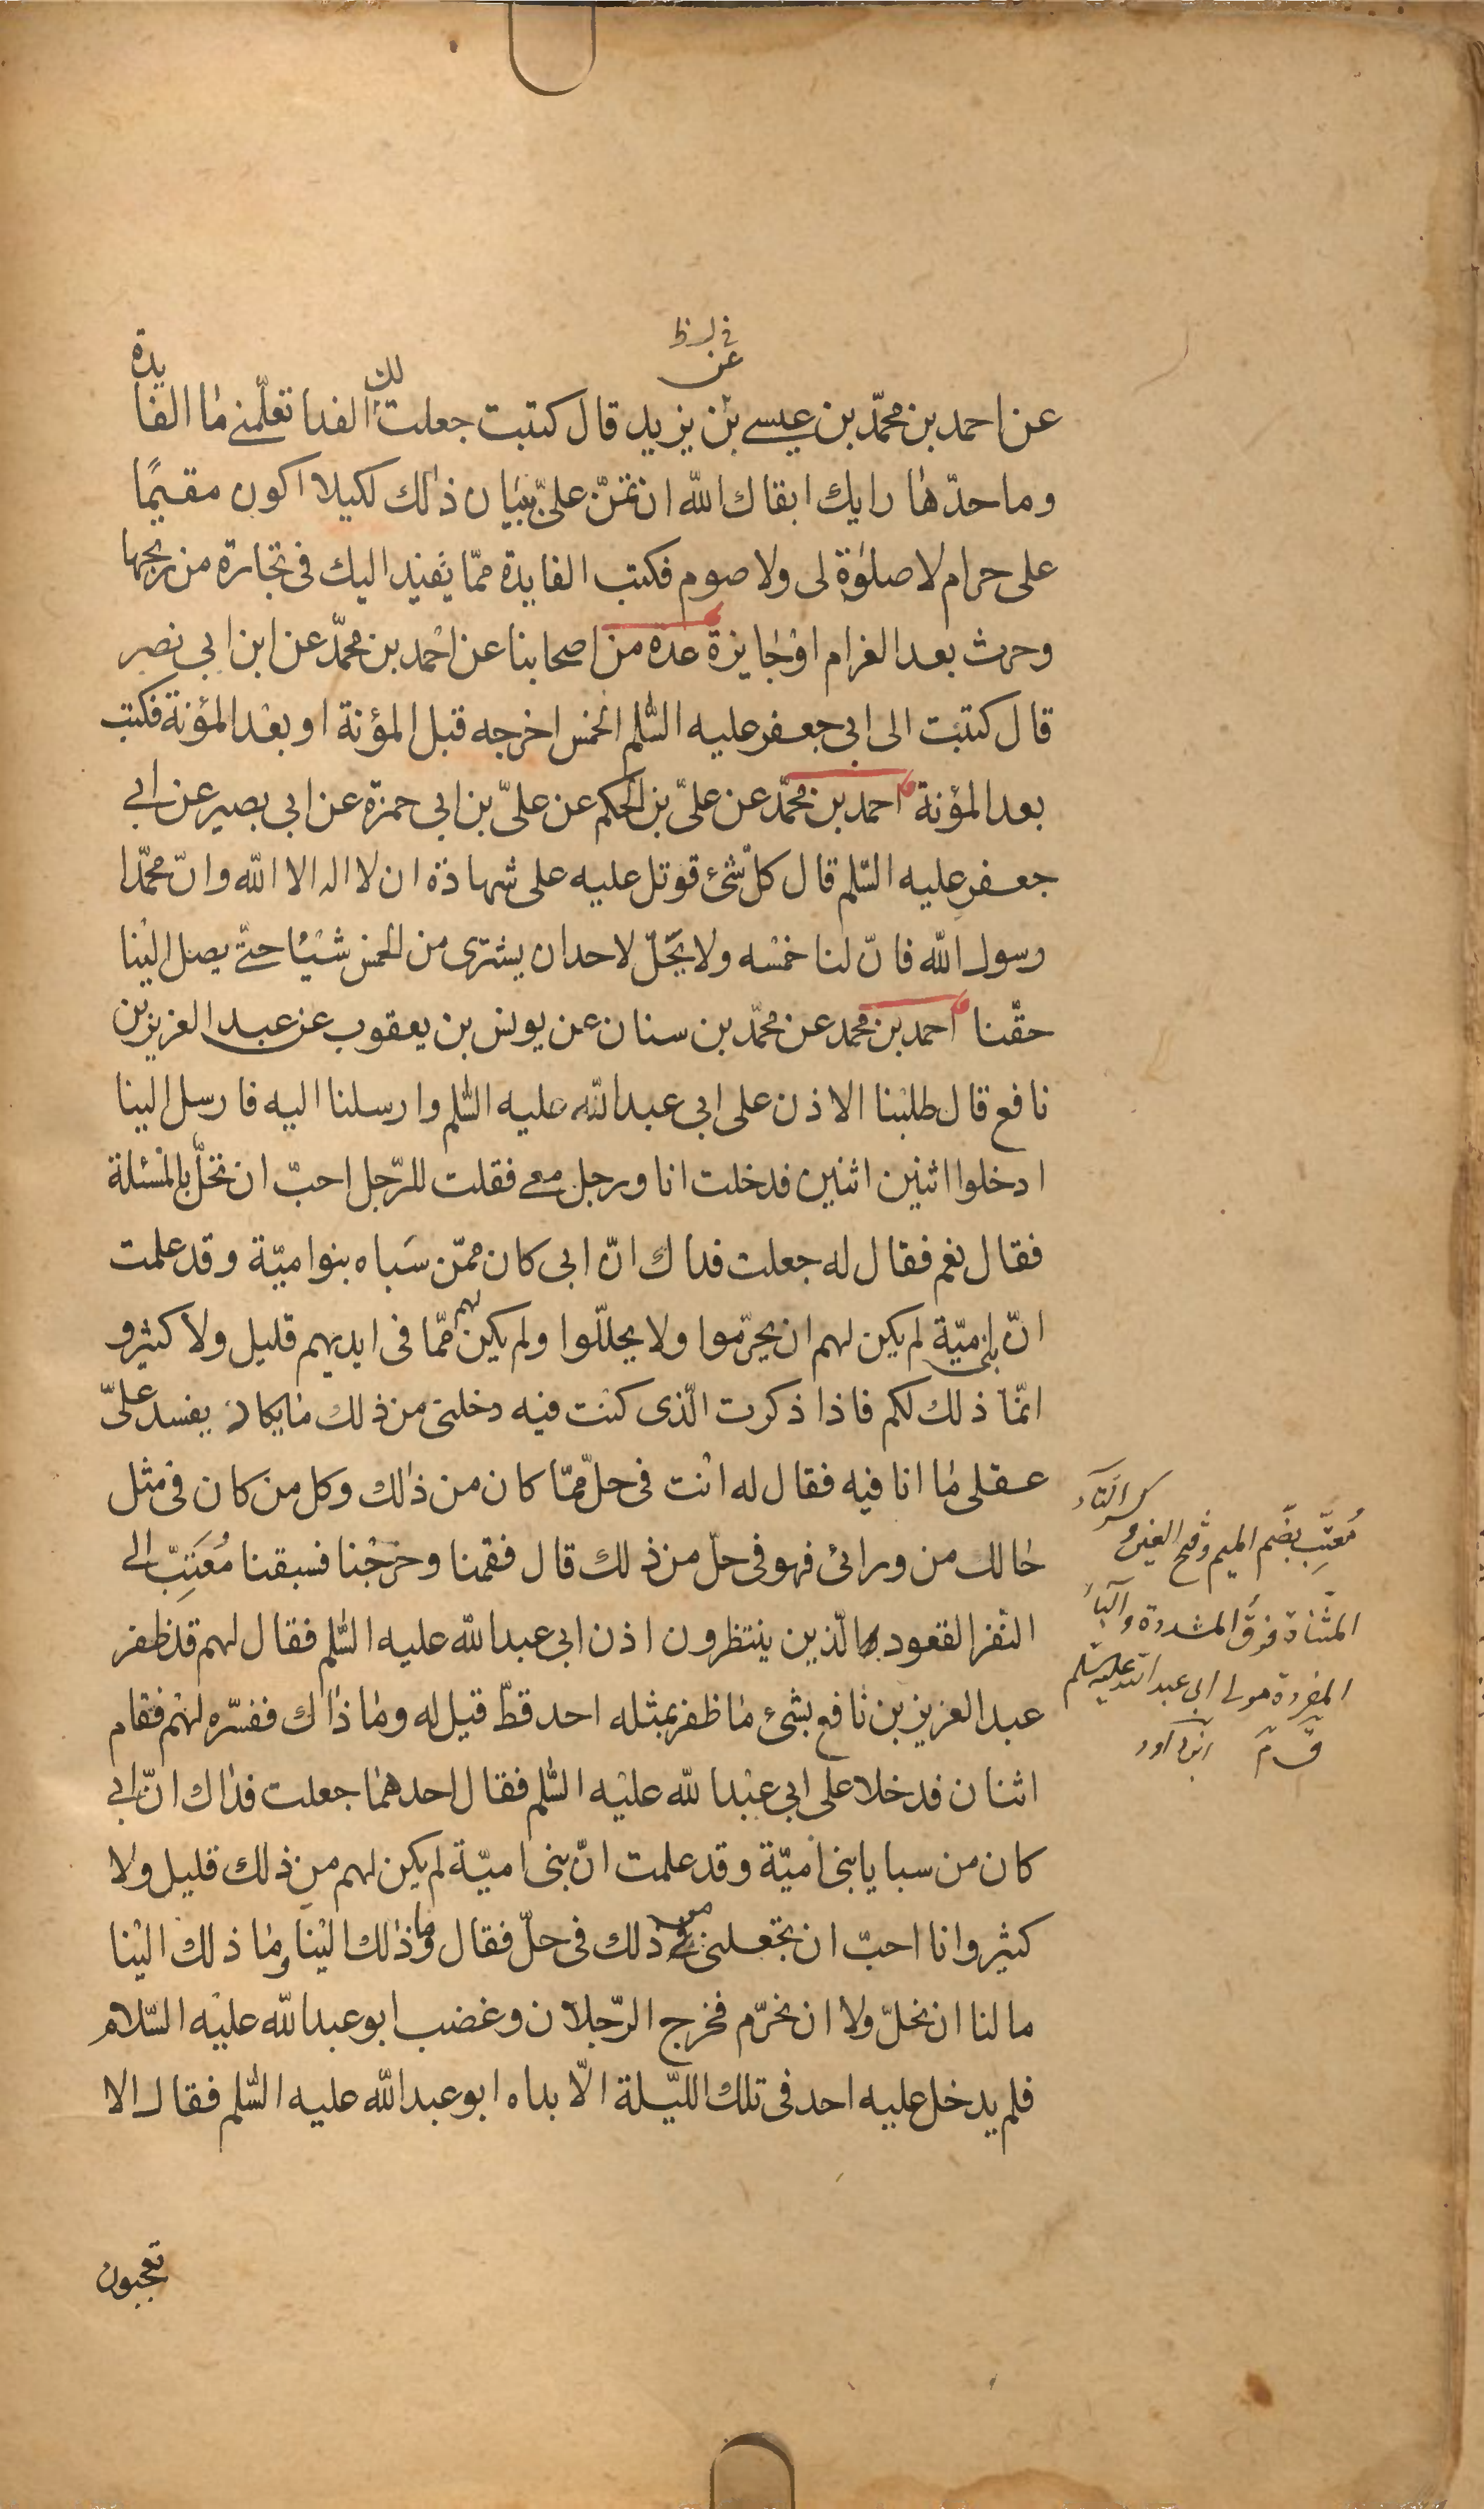 في نسخة
عن
عن احمد بن محمّد بن عيسے بن يزيد قال كتبت جعلت لك الفدا تعلّمنے ما الفايدة
وما حدّها رايك ابقاك اللّٰه ان تمنّ علىّ ببيان ذلك لكيلا اكون مقيمًا
على حرام لا صلوة لى ولا صوم فكتب الفايدة ممّا يفيد اليك فى تجارة من ربحها
وحرث بعد الغرام او جايزة عدة من اصحابنا عن احمد بن محمّد عن ابن ابي نصر
قال كتبت الى ابي جعفر عليه السّلم الخمس اخرجه قبل المؤنة او بعد المؤنة فكتب
بعد المؤنة احمد بن محمّد عن علىّ بن الحكم عن علىّ بن ابي حمزة عن ابي بصير عن ابي
جعفر عليه السّلم قال كلّ شئ قوتل عليه على شهادة ان لا اله الا اللّٰه وانّ محمّدا
رسول اللّٰه فانّ لنا خمسه ولا يحلّ لاحد ان يشترى من الخمس شيئا حتّے يصل الينا
حقّنا احمد بن محمد عن محمّد بن سنان عن يونس بن يعقوب عن عبد العزيز بن
نافع قال طلبنا الاذن على ابي عبد اللّٰه عليه السّلم وارسلنا اليه فارسل الينا
ادخلوا اثنين اثنين فدخلت انا ورجل معے فقلت للرّجل احبّ ان تحلّ بالمسئلة
فقال نعم فقال له جعلت فداك انّ ابى كان ممّن سَباه بنو اميّة وقد علمت
انّ بنى اميّة لم يكن لهم ان يحرّموا ولا يحلّلوا ولم يكن لهم ممّا فى ايديهم قليل ولا كثير و
انّما ذلك لكم فاذا ذكرت الّذى كنت فيه دخلنى من ذلك ما يكاد يفسد علىّ
عقلى ما انا فيه فقال له انت فى حلّ ممّا كان من ذلك وكل من كان فى مثل
حالك من ورائ فهو فى حلّ من ذلك قال فقمنا وخرجنا فسبقنا مُعَتِبّ الى
النّفر القعود الّذين ينتظرون اذن ابى عبد اللّٰه عليه السّلم فقال لهم قد ظفر
عبد العزيز بن نافع بشئ ما ظفر بمثله احد قطّ قيل له وما ذاك ففسّره لهم فقام
اثنان فدخلا على ابى عبد اللّٰه عليه السّلم فقال احدهما جعلت فداك انّ ابى
كان من سبايا بنى اميّة وقد علمت انّ بنى اميّة لم يكن لهم من ذلك قليل ولا
كثير وانا احبّ ان تجعلنى من ذلك فى حلّ فقال وما ذلك الينا وما ذلك الينا
ما لنا ان نحلّ ولا ان نحرّم فخرج الرّجلان وغضب ابو عبد اللّٰه عليه السّلام
فلم يدخل عليه احد فى تلك اللّيلة الّا بداه ابو عبد اللّٰه عليه السّلم فقال الا
تعجبون
مُعتِّب بضّم الميم وفتح العين و كسر التّاء
المثنّاة فوق المشدوة والباء
المفردة مولى ابى عبد اللّٰه عليه السّلم
ق م ابن داود